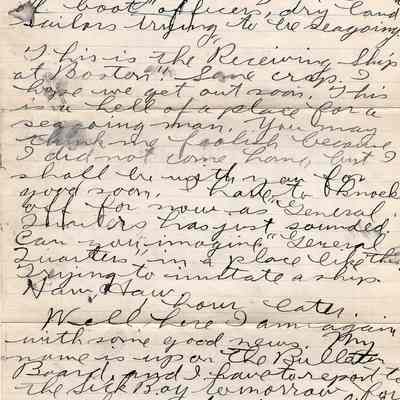 "boot" officers, dry land
sailors trying to be seagoing
"This is the Receiving Ship
at Boston" Some crap. I
hope we get out soon. This
is a hell of a place for a
seagoing man. You may
think me foolish because
I did not come home, but I
shall be with you for
good soon. I have to knock
off for now as "General
Quarters" has just sounded.
Can you imagine "General
Quarters" in a place like this
Trying to imitate a ship.
Haw Haw.
1 hour later.
Well here I am again
with some good news. My
name is up on the Bulletin
Board, and I have to report to
the Sick Bay tomorrow for